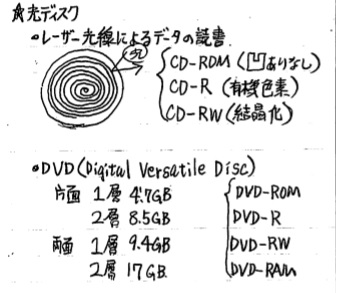 ☆光ディスク
•レーザー光線によるデータの読書
光
CD-ROM (凹ありなし)
CD-R (有機色素)
CD-RW (結晶化)
•DVD (Digital Versatile Disc)
片面 1層 4.7GB
2層 8.5GB
両面 1層 9.4GB
2層 17GB
DVD-ROM
DVD-R
DVD-RW
DVD-RAM